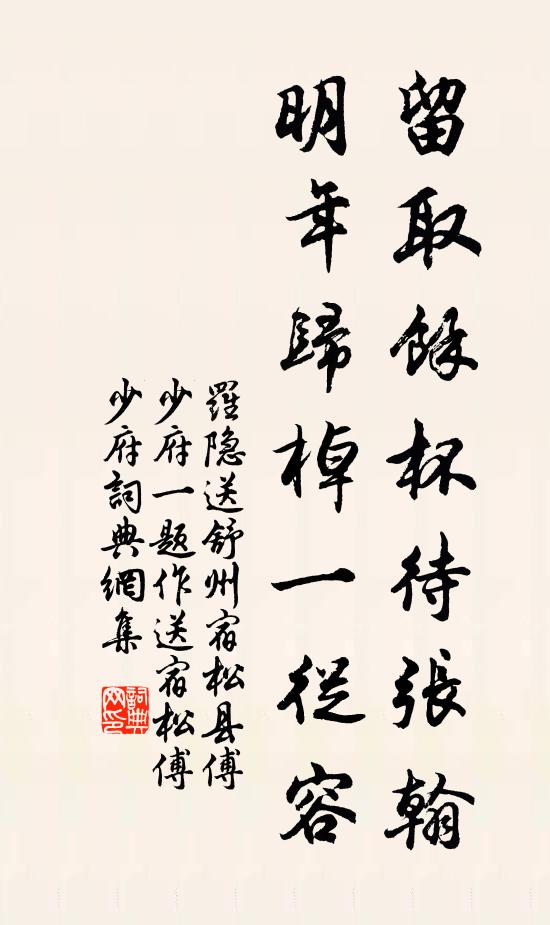 留取餘杯待張翰
明年歸棹一從容
羅隐送舒州宿松县傅
少府一题作送宿松傅
少府詞典網集
詞典網印